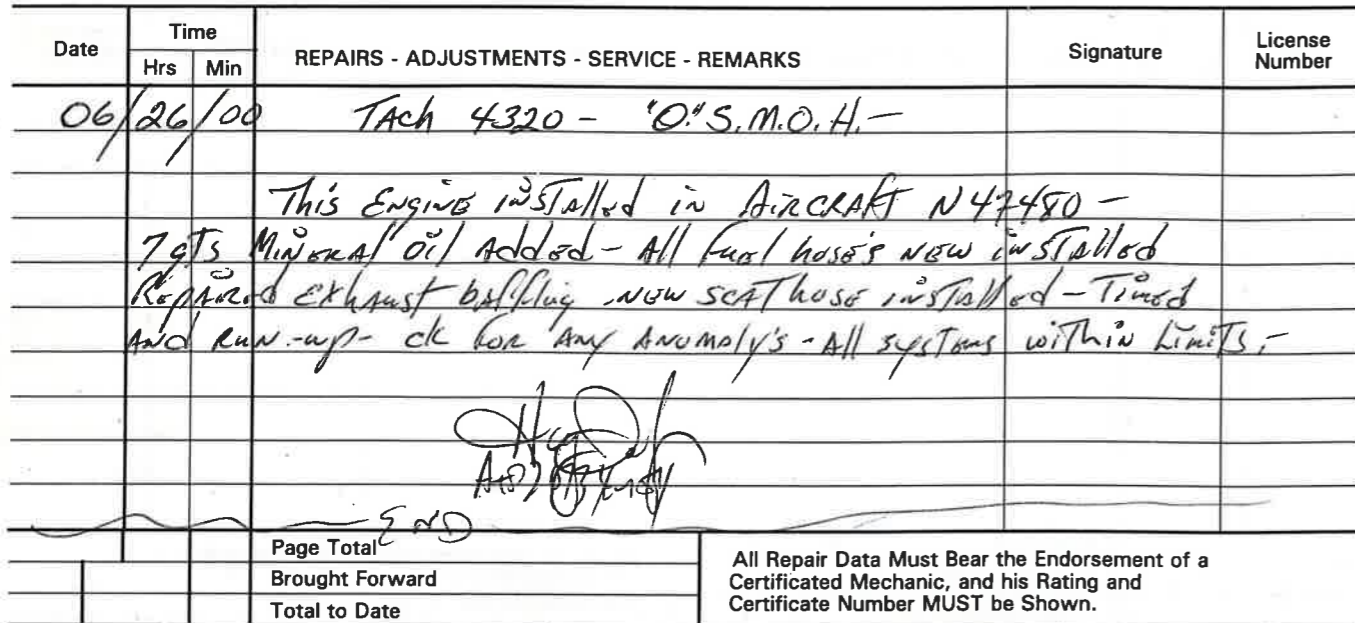 Date
Time
Hrs Min
REPAIRS - ADJUSTMENTS - SERVICE - REMARKS
Signature
License
Number
06/26/00 TAch 4320 - "O." S.M.O.H. -
This ENGINE iNSTAlled in AiRCRAft N47480 -
7 qTs MiNERAl Oil Added - All fuel hose's NEW iNSTAlled
REpAiREd ExhAust bAffliNg NEW SCAT hose iNSTAlled - Timed
ANd RuN-up - ck foR ANy ANomAly's - All sysTems wiThiN LimiTs, -
END
Page Total
Brought Forward
Total to Date
All Repair Data Must Bear the Endorsement of a
Certificated Mechanic, and his Rating and
Certificate Number MUST be Shown.